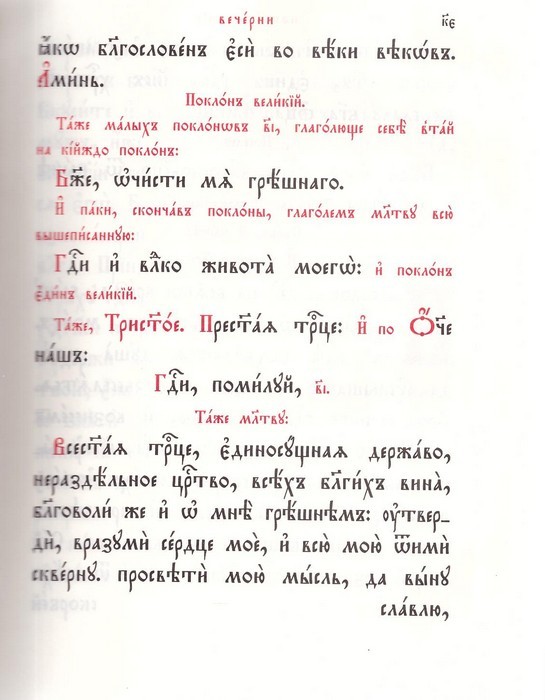 вече́рни к҃є
ꙗ҆́кѡ бл҃гослове́нъ є҆сѝ во вѣ́ки вѣкѡ́въ.
А҆ми́нь.
Покло́нъ вели́кїй.
Та́же ма́лыхъ покло́нѡвъ в҃і, глаго́люще себѣ̀ вта́й
на кі́йждо покло́нъ:
Бж҃е, ѡ҆чи́сти мѧ̀ грѣ́шнаго.
И҆ па́ки, сконча́въ покло́ны, глаго́лемъ мл҃тву всю̀
вышепи́санную:
Гдⷭ҇и и҆ влⷣко живота̀ моегѡ̀: и҆ покло́нъ
є҆ди́нъ вели́кїй.
Та́же, Трист҃о́е. Прест҃а́ѧ трⷪ҇це: И҆ по Ѻ҆́че
на́шъ:
Гдⷭ҇и, поми́луй, в҃і.
Та́же мл҃тву:
Всест҃а́ѧ трⷪ҇це, є҆диносу́щнаѧ держа́во,
нераздѣ́льное црⷭ҇тво, всѣ́хъ бл҃ги́хъ вина̀,
бл҃говоли́ же и҆ ѡ҆ мнѣ̀ грѣ́шнѣмъ: ѹ҆твер⸗
дѝ, вразумѝ се́рдце моѐ, и҆ всю̀ мою̀ ѿимѝ
скве́рну. просвѣтѝ мою̀ мы́сль, да вы́ну
сла́влю,